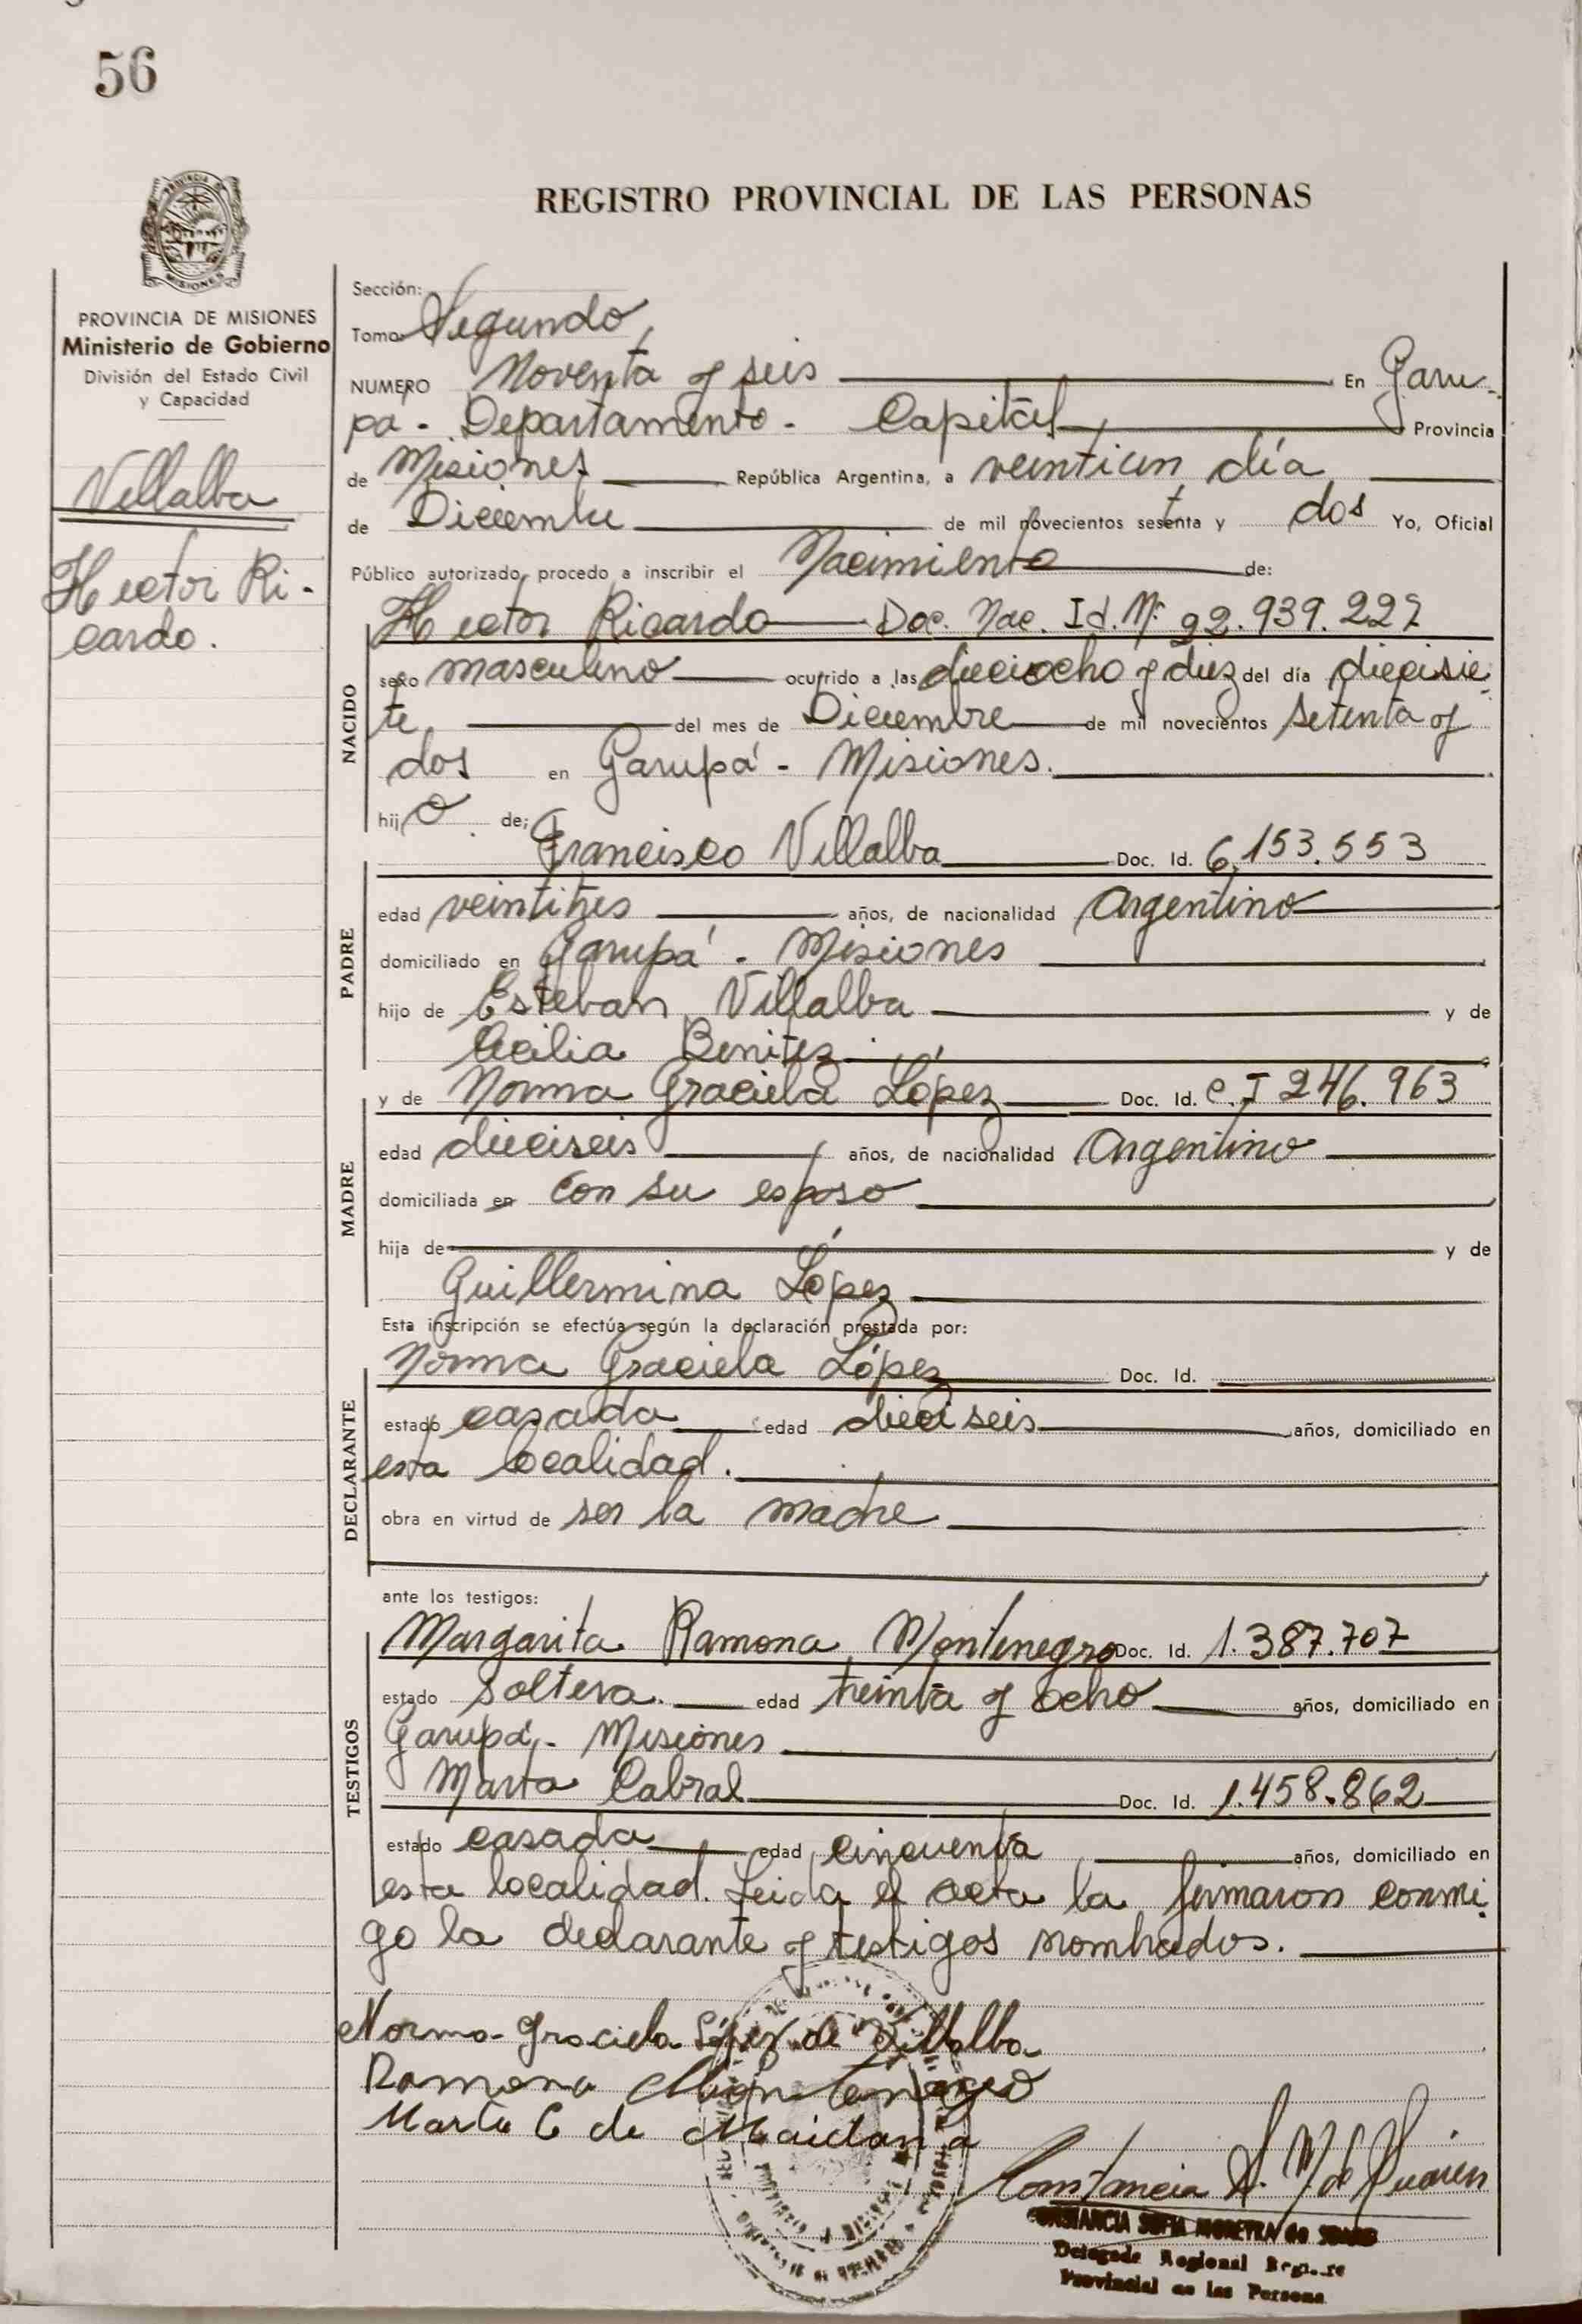 56
REGISTRO PROVINCIAL DE LAS PERSONAS
MISIONES
PROVINCIA DE MISIONES
Ministerio de Gobierno
División del Estado Civil
y Capacidad
Villalba
Hector Ri-
cardo.
Sección:
Tomo: Segundo
NUMERO Noventa y seis En Garu-
pa - Departamento - Capital Provincia
de Misiones República Argentina, a veintiun día
de Diciembre de mil novecientos sesenta y dos Yo, Oficial
Público autorizado, procedo a inscribir el Nacimiento de:
NACIDO
Hector Ricardo Doc. Nac. Id. Nº 92.939.227
sexo masculino ocurrido a las dieciocho y diez del día diecisie-
te del mes de Diciembre de mil novecientos setenta y
dos en Garupá - Misiones.
hijo de;
PADRE
Francisco Villalba Doc. Id. 6.153.553
edad veintitres años, de nacionalidad Argentino
domiciliado en Garupá - Misiones
hijo de Esteban Villalba y de
Cecilia Benitez
MADRE
y de Norma Graciela López Doc. Id. C.I 246.963
edad dieciseis años, de nacionalidad Argentino
domiciliada en con su esposo
hija de y de
Guillermina López
Esta inscripción se efectúa según la declaración prestada por:
DECLARANTE
Norma Graciela López Doc. Id.
estado casada edad dieciseis años, domiciliado en
esta localidad.
obra en virtud de ser la madre
ante los testigos:
TESTIGOS
Margarita Ramona Montenegro Doc. Id. 1.387.707
estado soltera. edad treinta y ocho años, domiciliado en
Garupá - Misiones
Marta Cabral Doc. Id. 1.458.862
estado casada edad cincuenta años, domiciliado en
esta localidad. Leida el acta la firmaron conmi-
go la declarante y testigos nombrados.
Norma Graciela López de Villalba
Ramona Montenegro
Marta C de Maidana
Constancia S. M de Suarez
CONSTANCIA SOFIA MOREYRA de SUAREZ
Delegada Regional
Provincial de las Persona